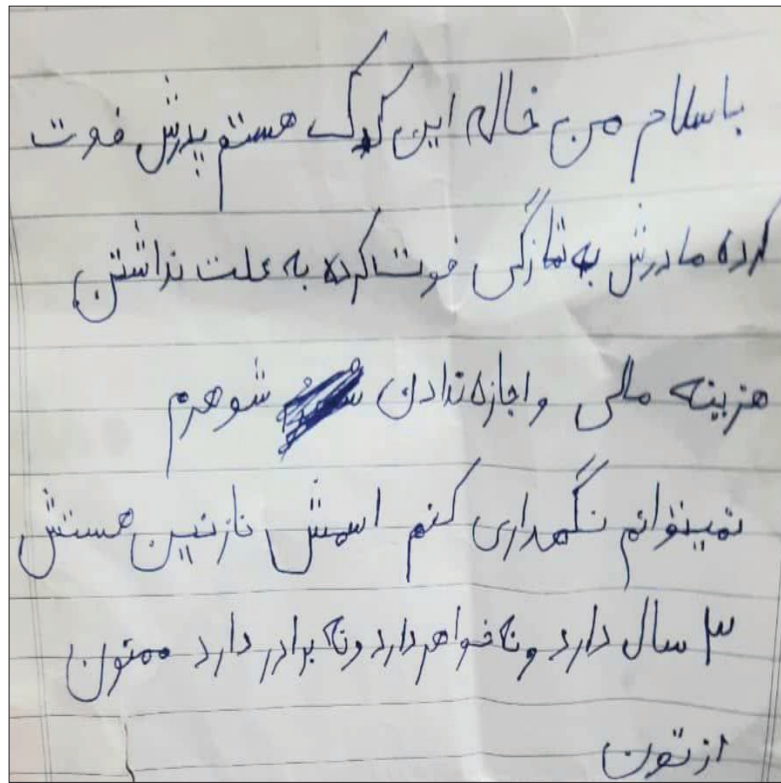 باسلام من خاله این کودک هستم پدرش فوت
کرده مادرش به تازگی فوت کرده به علت نداشتن
هزینه ملی و اجازه ندادن شوهرم
نمیتوانم نگهداری کنم اسمش نازنین هستش
۳ سال دارد و نه خواهر دارد و نه برادر دارد ممنون
ازتون